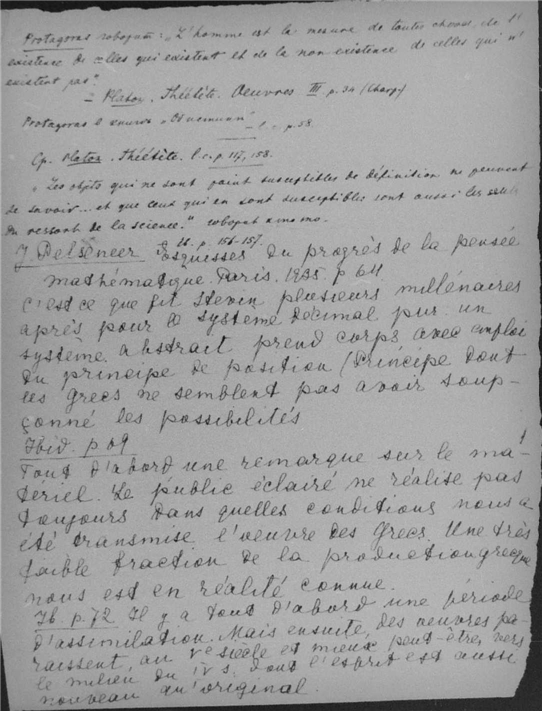 Protagoras говорит: „L'homme est la mesure de toutes choses, de l'
existence de celles qui existent et de la non-existence de celles qui n'
existent pas".
– Platon. Théétète. Oeuvres III p. 34 (Charp.)
Protagoras
– l. c. p. 58.
Ср. Platon. Théétète. l. c. p. 157, 158.
„Les objets qui ne sont point susceptibles de définition ne peuvent
se savoir... et que ceux qui en sont susceptibles sont aussi les seuls
du ressort de la science."
Ib. p. 156–157.
J. Pelseneer Esquisses du progrès de la pensée
mathématique. Paris. 1935. p 64
c'est ce que fit Stevin plusieurs millénaires
après pour le système decimal pur. un
système abstrait prend corps avec emploi
du principe de position (Principe dont
les grecs ne semblent pas avoir soup-
çonné les possibilités
Ibid. p 69
Tout d'abord une remarque sur le ma-
teriel. Le public éclairé ne réalise pas
toujours dans quelles conditions nous a
été transmise l'oeuvre des grecs. Une très
faible fraction de la production grecque
nous est en réalité connue.
Ib p. 72 Il y a tout d'abord une période
d'assimilation. Mais ensuite, des oeuvres pa-
raissent, au Ve siècle et mieux peut-être, vers
le milieu du IV s. dont l'esprit est aussi
nouveau qu'original.